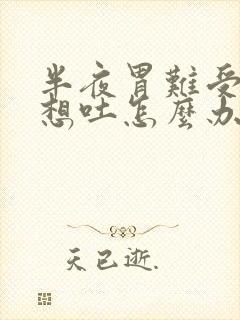 半夜胃難受
想吐怎麼办
天已逝.